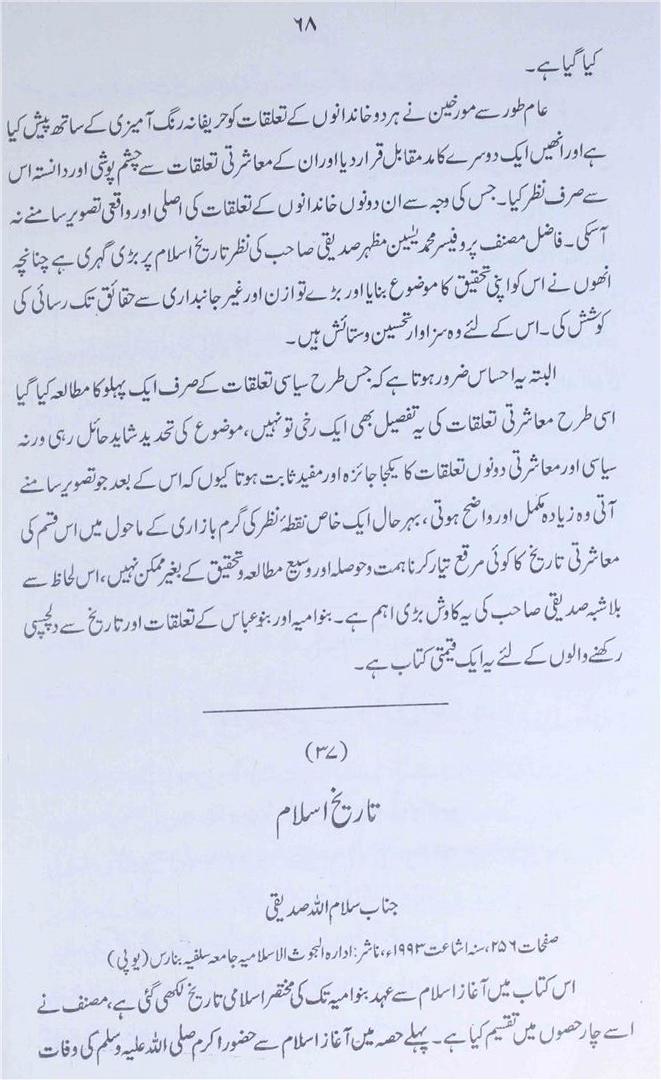 ۶۸
کیا گیا ہے۔
عام طور سے مورخین نے ہر دو خاندانوں کے تعلقات کو حریفانہ رنگ آمیزی کے ساتھ پیش کیا
ہے اور انھیں ایک دوسرے کا مد مقابل قرار دیا اور ان کے معاشرتی تعلقات سے چشم پوشی اور دانستہ اس
سے صرف نظر کیا۔ جس کی وجہ سے ان دونوں خاندانوں کے تعلقات کی اصلی اور واقعی تصویر سامنے نہ
آسکی۔ فاضل مصنف پروفیسر محمد یٰسین مظہر صدیقی صاحب کی نظر تاریخ اسلام پر بڑی گہری ہے چنانچہ
انھوں نے اس کو اپنی تحقیق کا موضوع بنایا اور بڑے توازن اور غیر جانبداری سے حقائق تک رسائی کی
کوشش کی۔ اس کے لئے وہ سزاوار تحسین و ستائش ہیں۔
البتہ یہ احساس ضرور ہوتا ہے کہ جس طرح سیاسی تعلقات کے صرف ایک پہلو کا مطالعہ کیا گیا
اسی طرح معاشرتی تعلقات کی یہ تفصیل بھی ایک رخی تو نہیں، موضوع کی تحدید شاید حائل رہی ورنہ
سیاسی اور معاشرتی دونوں تعلقات کا یکجا جائزہ اور مفید ثابت ہوتا کیوں کہ اس کے بعد جو تصویر سامنے
آتی وہ زیادہ مکمل اور واضح ہوتی، بہر حال ایک خاص نقطۂ نظر کی گرم بازاری کے ماحول میں اس قسم کی
معاشرتی تاریخ کا کوئی مرقع تیار کرنا ہمت و حوصلہ اور وسیع مطالعہ و تحقیق کے بغیر ممکن نہیں، اس لحاظ سے
بلاشبہ صدیقی صاحب کی یہ کاوش بڑی اہم ہے۔ بنوامیہ اور بنوعباس کے تعلقات اور تاریخ سے دلچسپی
رکھنے والوں کے لئے یہ ایک قیمتی کتاب ہے۔
(۳۷)
تاریخ اسلام
جناب سلام اللہ صدیقی
صفحات ۲۵۶، سنہ اشاعت ۱۹۹۳ء، ناشر: ادارہ البحوث الاسلامیہ جامعہ سلفیہ بنارس (یوپی)
اس کتاب میں آغاز اسلام سے عہد بنوامیہ تک کی مختصر اسلامی تاریخ لکھی گئی ہے، مصنف نے
اسے چار حصوں میں تقسیم کیا ہے۔ پہلے حصہ مین آغاز اسلام سے حضور اکرم صلی اللہ علیہ وسلم کی وفات